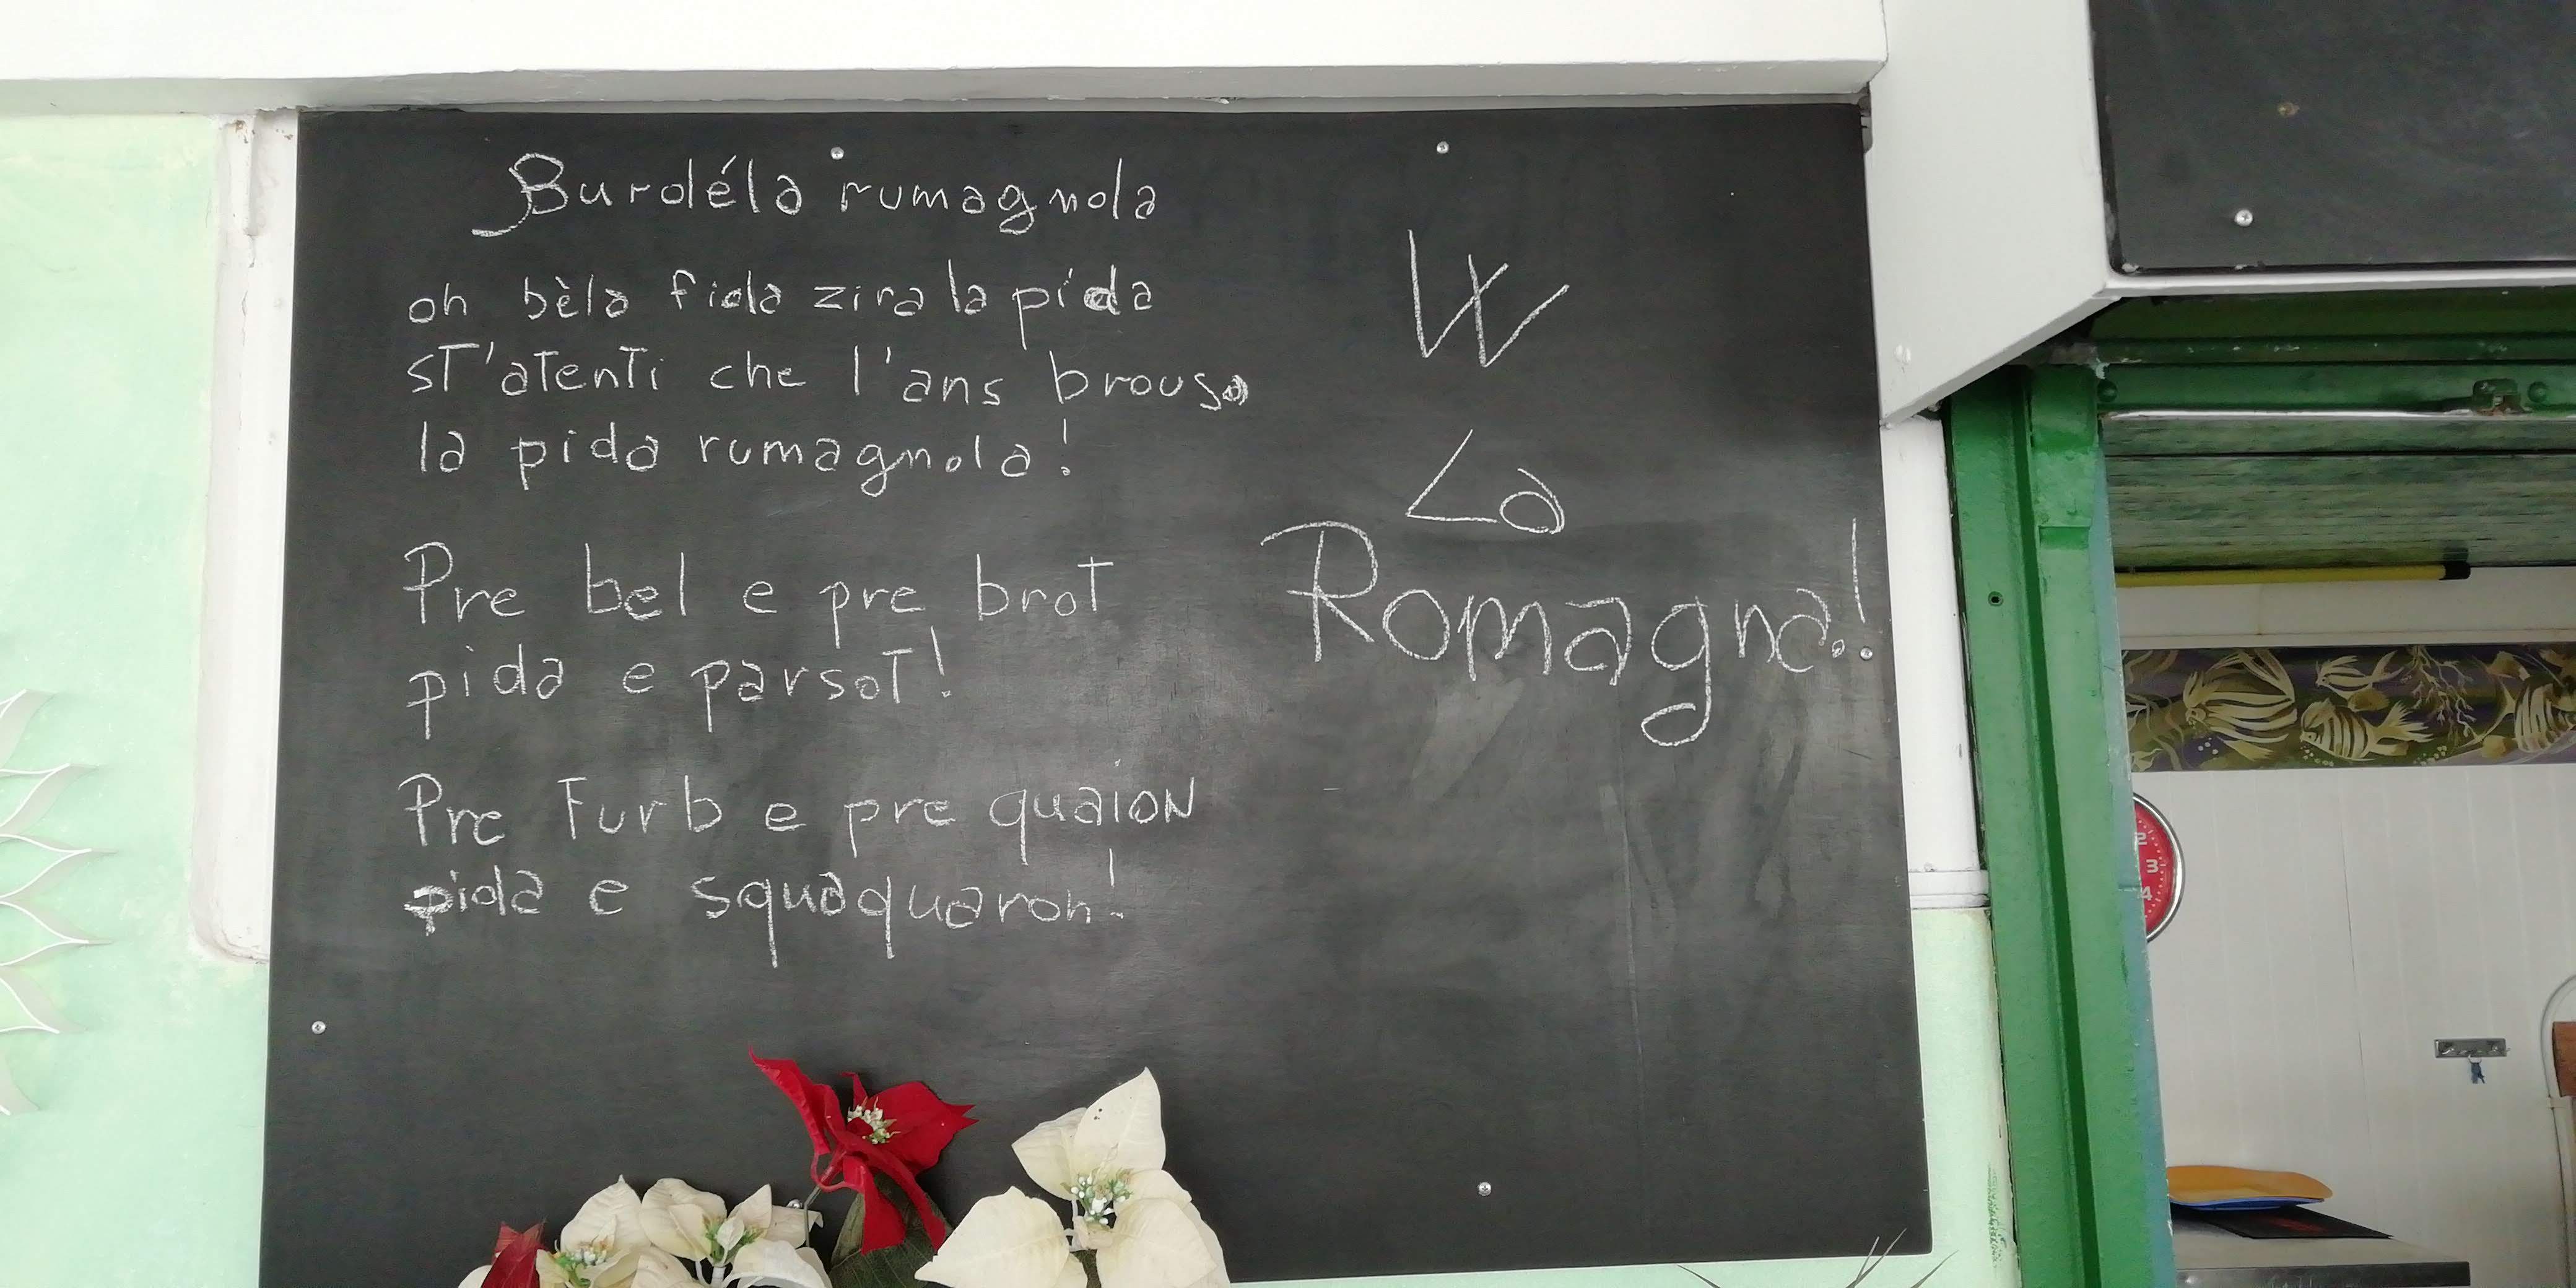 Burdéla rumagnola
oh bèla fiola zira la pida
st'atenti che l'ans brousa
la pida rumagnola!
Pre bel e pre brot
pida e parsot!
Pre furb e pre quaion
pida e squaquaron!
W
La
Romagna!
2
3
4